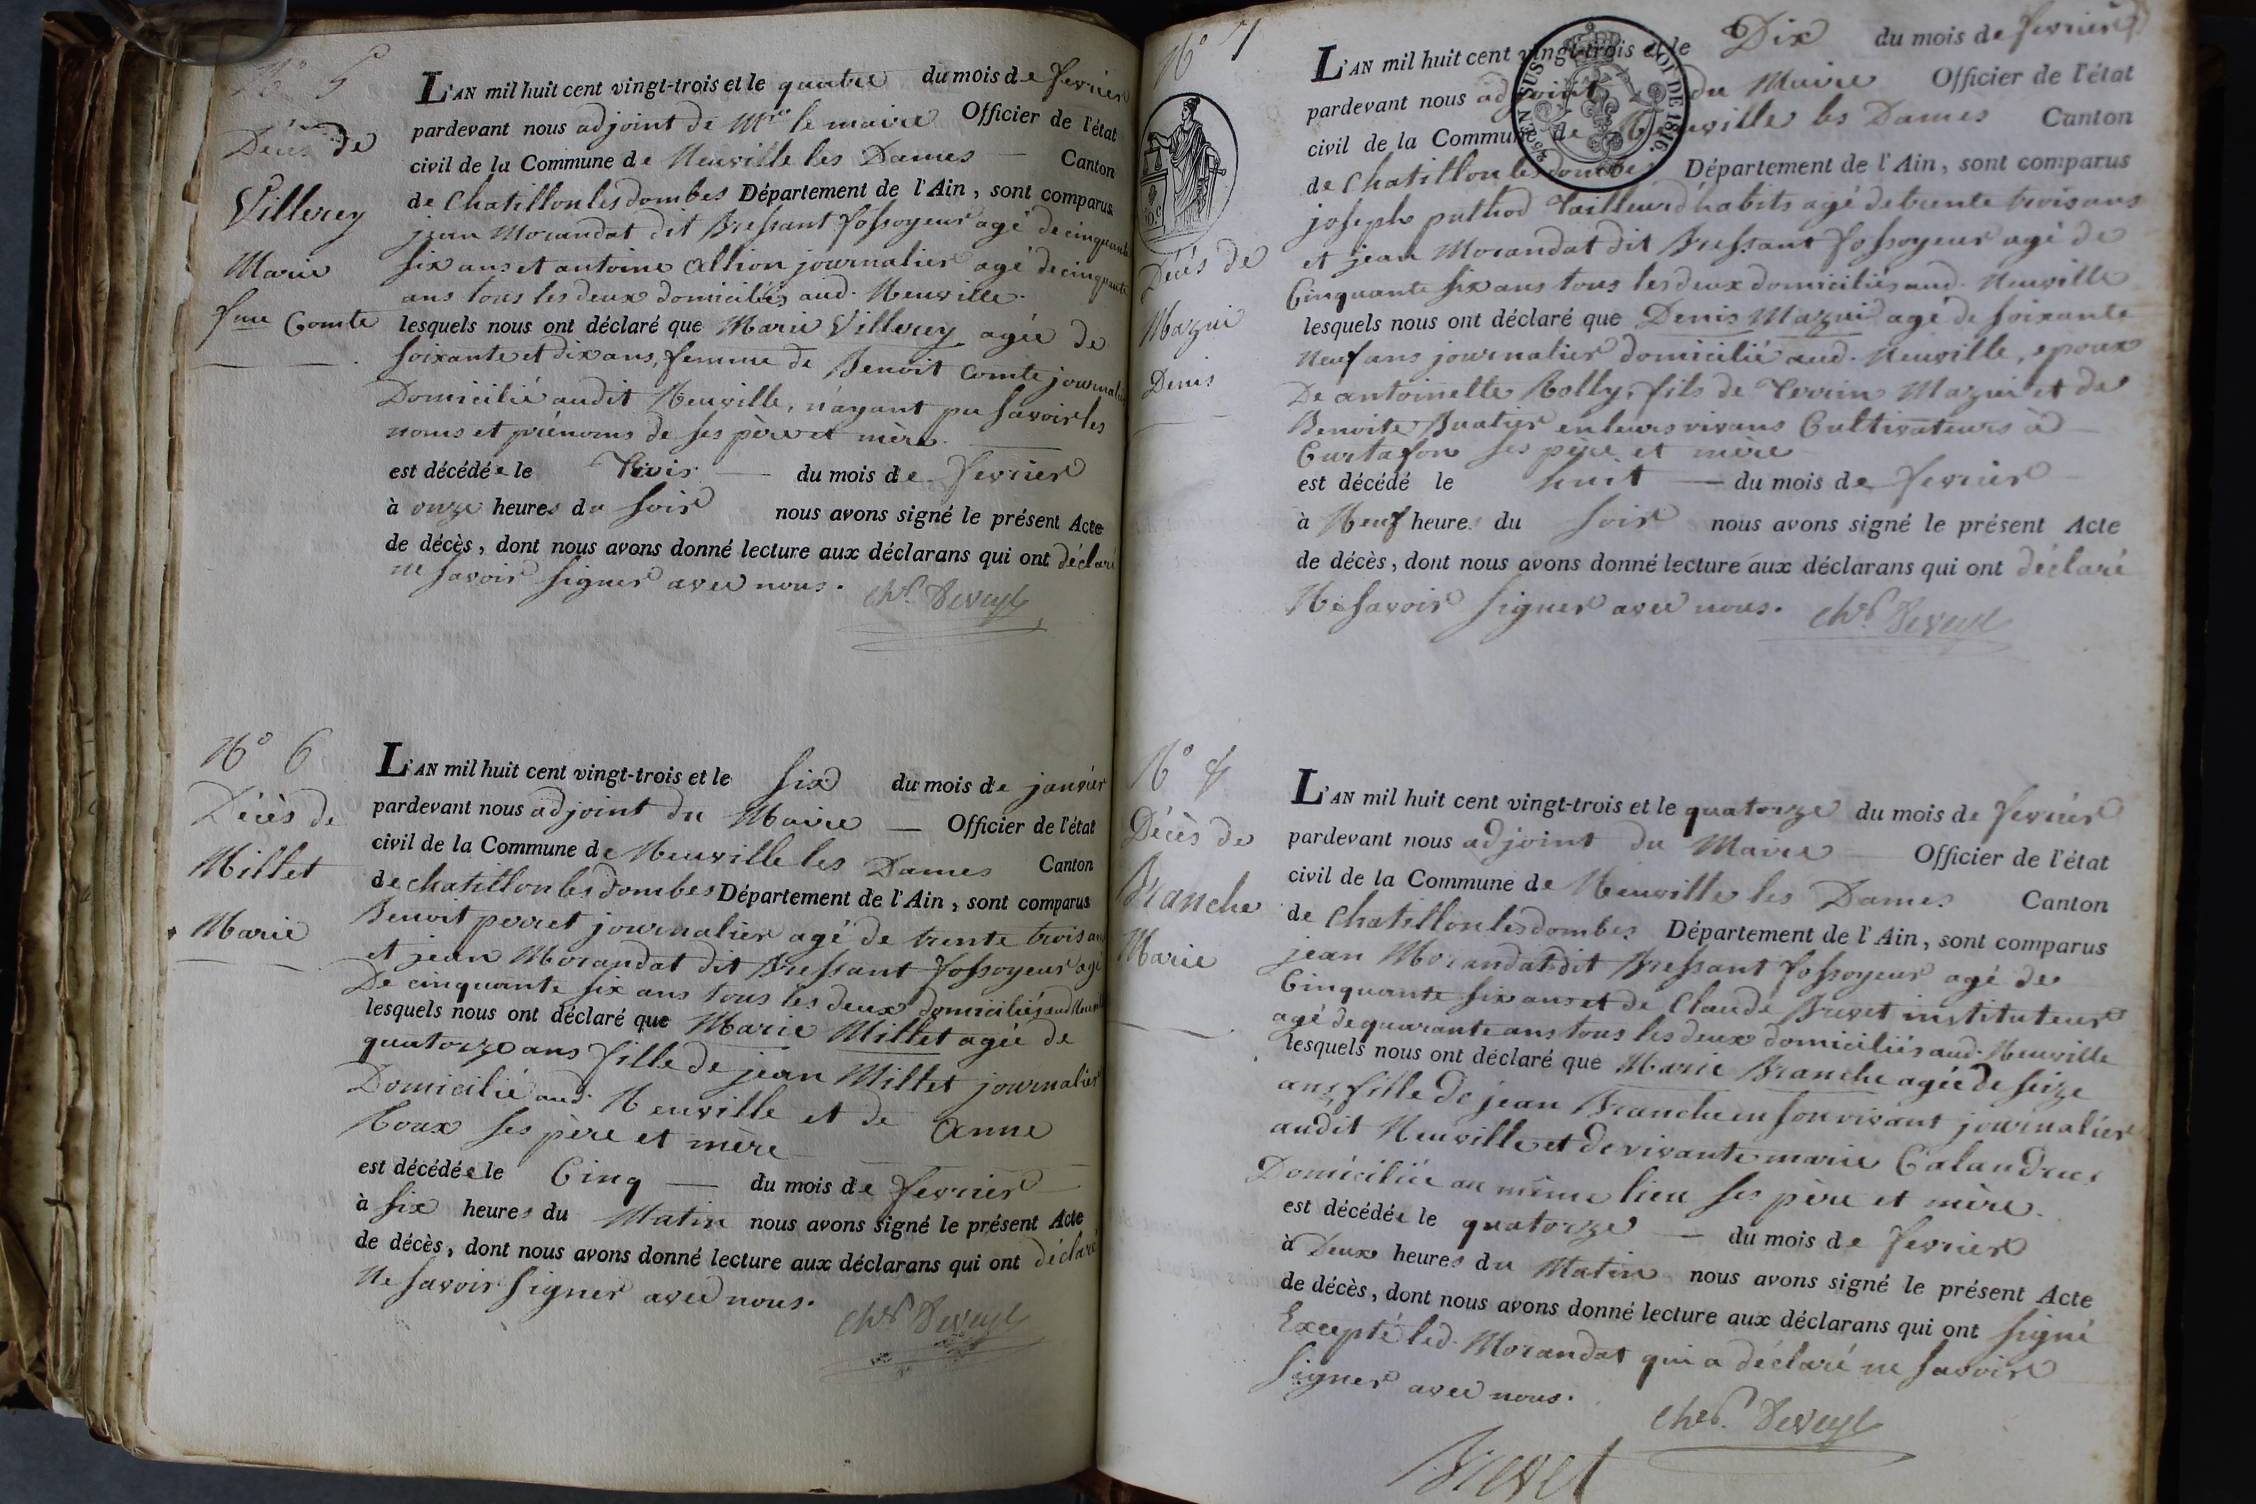 N° 5
Décès de
Villerey
Marie
fme Comte
L'AN mil huit cent vingt-trois et le quatre du mois de fevrier
pardevant nous adjoint de Mr le maire Officier de l'état
civil de la Commune de Neuville les Dames — Canton
de Chatillon les dombes Département de l'Ain, sont comparus
jean Morandat dit Bressant fossoyeur agé de cinquante
six ans et antoine Allion journalier agé de cinquante
ans tous les deux domiciliés aud. Neuville.
lesquels nous ont déclaré que Marie Villerey agée de
soixante et dix ans, femme de Benoit Comte journalier
Domicilié audit Neuville, n'ayant pu savoir les
noms et prénoms de ses père et mère.
est décédée le Trois — du mois de fevrier
à onze heures du soir nous avons signé le présent Acte
de décès, dont nous avons donné lecture aux déclarans qui ont déclaré
ne savoir signer avec nous.
chr. Deveyle
N° 6
Décès de
Millet
Marie
L'AN mil huit cent vingt-trois et le six du mois de janvier
pardevant nous adjoint du Maire — Officier de l'état
civil de la Commune de Neuville les Dames Canton
de chatillon les dombes Département de l'Ain, sont comparus
Benoit perret journalier agé de trente trois ans
et jean Morandat dit Bressant fossoyeur agé
De cinquante six ans tous les deux domiciliés aud Neuville
lesquels nous ont déclaré que Marie Millet agée de
quatorze ans fille de jean Millet journalier
Domicilié aud. Neuville et de Anne
Roux ses père et mère
est décédée le Cinq — du mois de fevrier
à six heures du Matin nous avons signé le présent Acte
de décès, dont nous avons donné lecture aux déclarans qui ont déclaré
Ne savoir signer avec nous.
chr. Deveyle
N° 7
Décès de
Mazui
Denis
L'AN mil huit cent vingt-trois et le Dix du mois de fevrier
pardevant nous adjoint du Maire Officier de l'état
civil de la Commune de Neuville les Dames Canton
de Chatillon les dombes Département de l'Ain, sont comparus
joseph puthod Tailleur d'habits agé de trente trois ans
et jean Morandat dit Bressant fossoyeur agé de
Cinquante six ans tous les deux domiciliés aud. Neuville
lesquels nous ont déclaré que Denis Mazui agé de soixante
Neuf ans journalier domicilié aud. Neuville, epoux
De antoinette Rolly, fils de Perrin Mazui et de
Benoite Buatier en leurs vivans Cultivateurs à
Curtafon ses père et mère
est décédé le huit — du mois de fevrier
à Neuf heures du soir nous avons signé le présent Acte
de décès, dont nous avons donné lecture aux déclarans qui ont déclaré
Ne savoir signer avec nous. chr. Deveyle
N° 8
Décès de
Branche
Marie
L'AN mil huit cent vingt-trois et le quatorze du mois de fevrier
pardevant nous adjoint du Maire — Officier de l'état
civil de la Commune de Neuville les Dames Canton
de Chatillon les dombes Département de l'Ain, sont comparus
jean Morandat dit Bressant fossoyeur agé de
Cinquante six ans et de Claude Brevet instituteur
agé de quarante ans tous les deux domiciliés aud. Neuville
lesquels nous ont déclaré que Marie Branche agée de seize
ans, fille de jean Branche en son vivant journalier
audit Neuville et de vivante marie Calandras
Domiciliée au même lieu ses père et mère.
est décédée le quatorze — du mois de fevrier
à Deux heures du Matin nous avons signé le présent Acte
de décès, dont nous avons donné lecture aux déclarans qui ont signé
Excepté led. Morandat qui a déclaré ne savoir
signer avec nous.
chr. Deveyle
Brevet